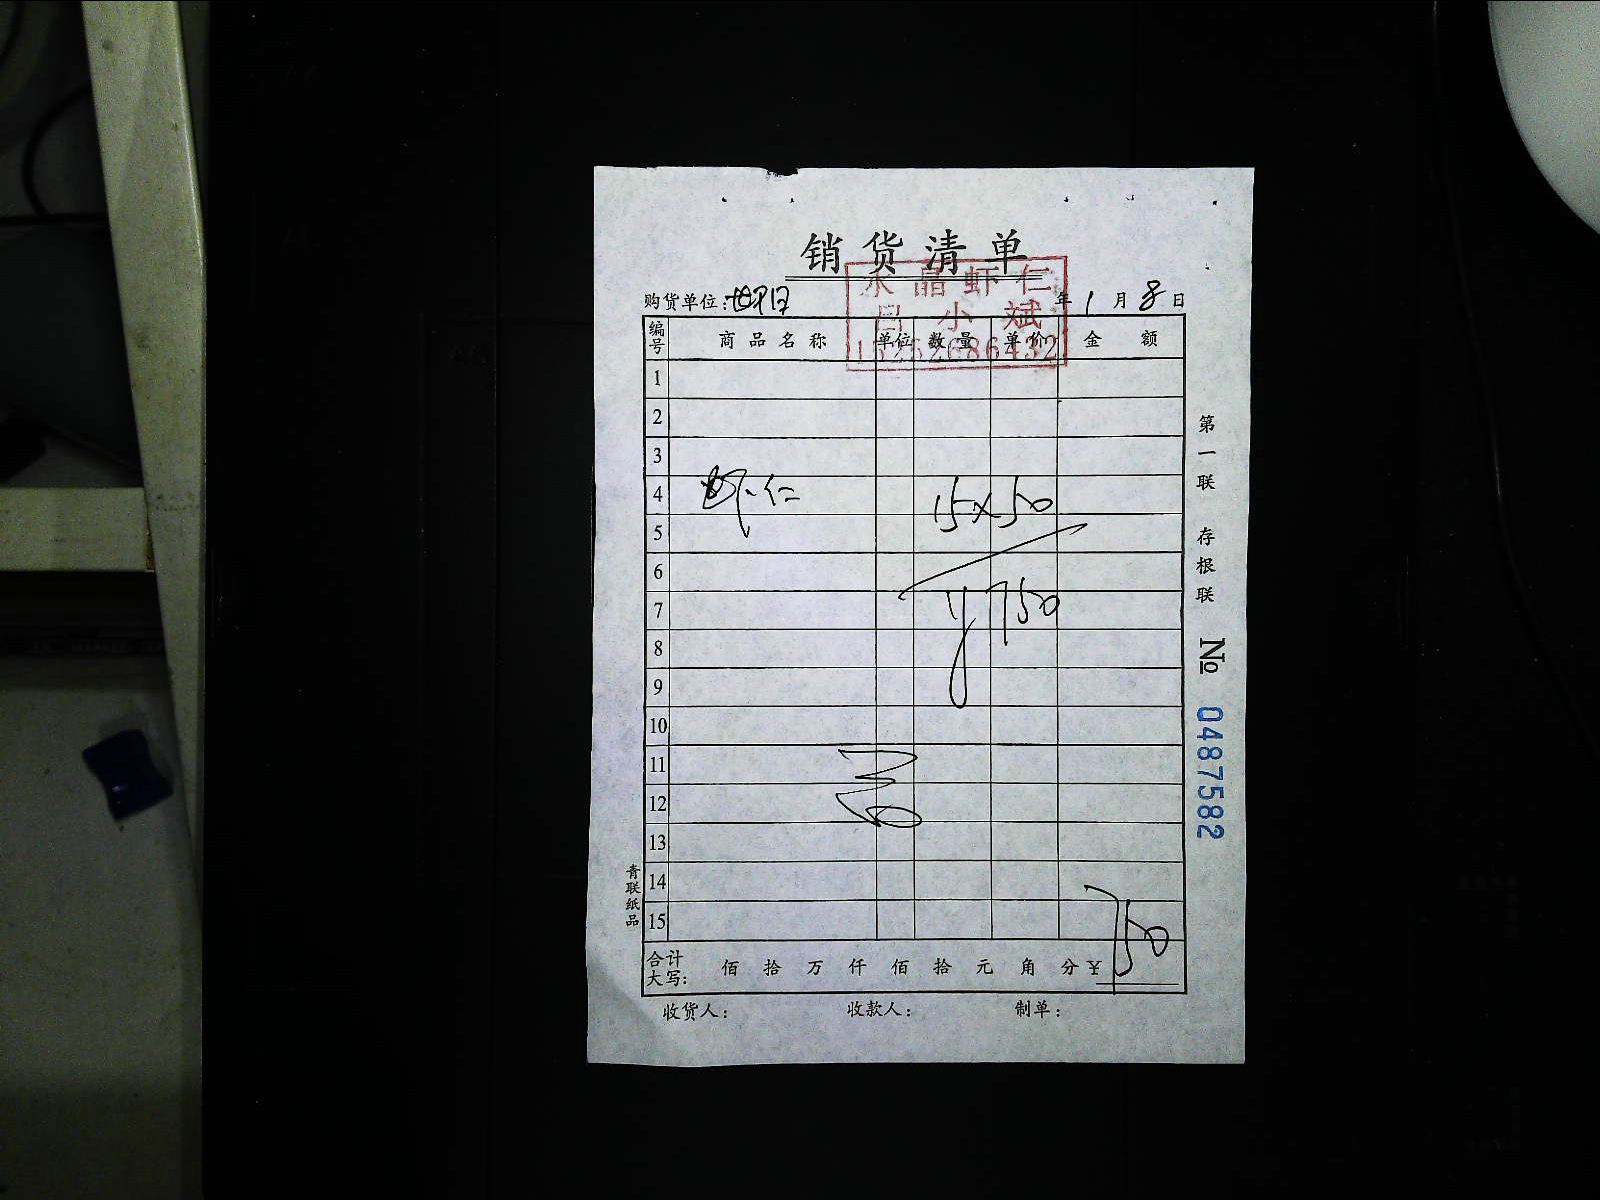 销货清单
水晶虾仁
吕小斌
15252686432
购货单位: 年 1 月 8 日
编号 商品名称 单位 数量 单价 金额
1
2
3
4 虾仁 15×50
5
6
7 ¥750
8
9
10
11
12
13
14
15
合计大写: 佰 拾 万 仟 佰 拾 元 角 分 ¥ 750
收货人: 收款人: 制单:
第一联 存根联
№ 0487582
青联纸品